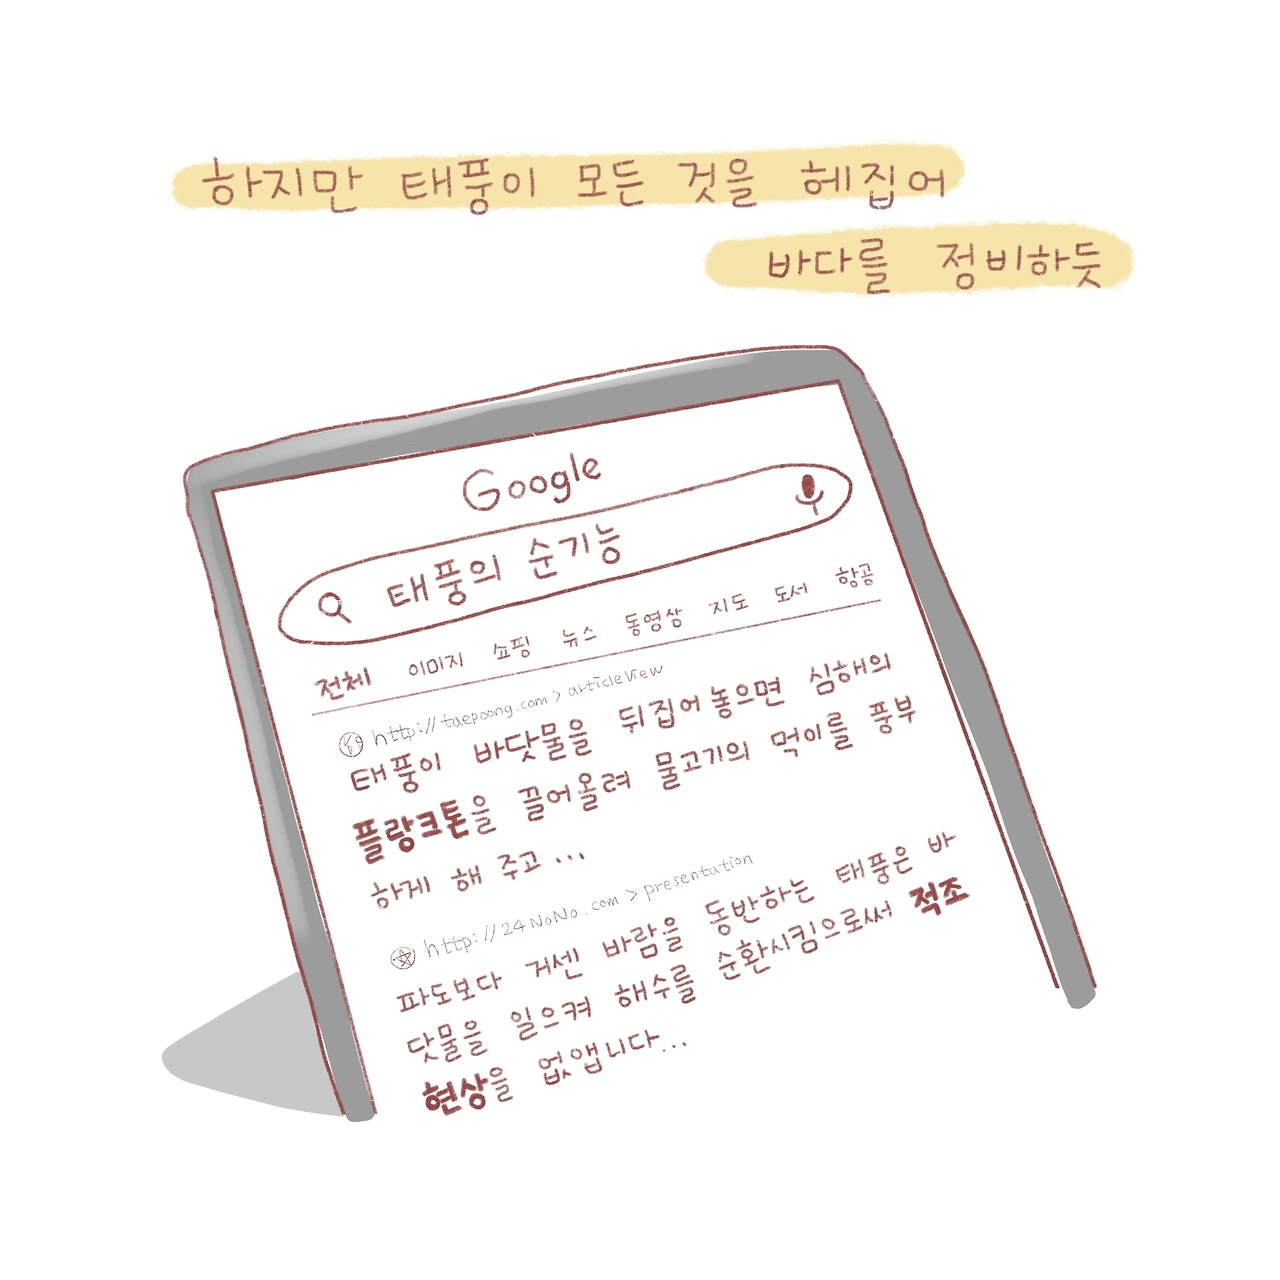 하지만 태풍이 모든 것을 헤집어
바다를 정비하듯
Google
태풍의 순기능
전체 이미지 쇼핑 뉴스 동영상 지도 도서 항공
http://taepoong.com > articleView
태풍이 바닷물을 뒤집어 놓으면 심해의
플랑크톤을 끌어올려 물고기의 먹이를 풍부
하게 해 주고 ...
http://24NoNo.com > presentation
파도보다 거센 바람을 동반하는 태풍은 바
닷물을 일으켜 해수를 순환시킴으로써 적조
현상을 없앱니다...